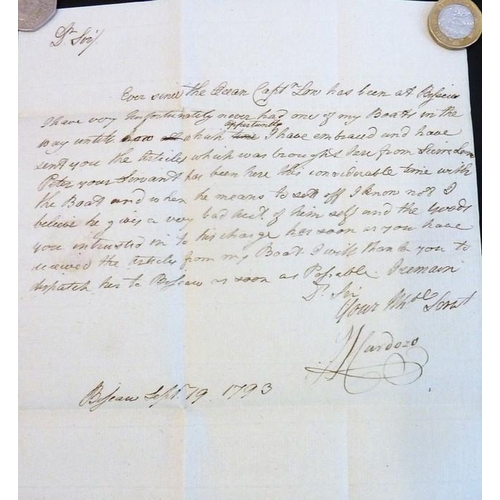 Dr Sir/
Ever since the Ocean Captn Low has been at Bissau
I have very unfortunately never had one of my Boats in the
opportunity
way until now which I have embraced and have
sent you the Articles which was brought here from
Peter your Servant has been here this considerable time with
the Boat and when he means to sett off I know not I
believe he gives a very bad acct of them self and the Goods
you intrusted in to his charge as soon as you have
received the Articles from my Boat I will thank you to
dispatch her to Bissau as soon as Possible I remain
Dr Sir
Your Mble Servt
J Cardozo
Bissau Sept 19 1793